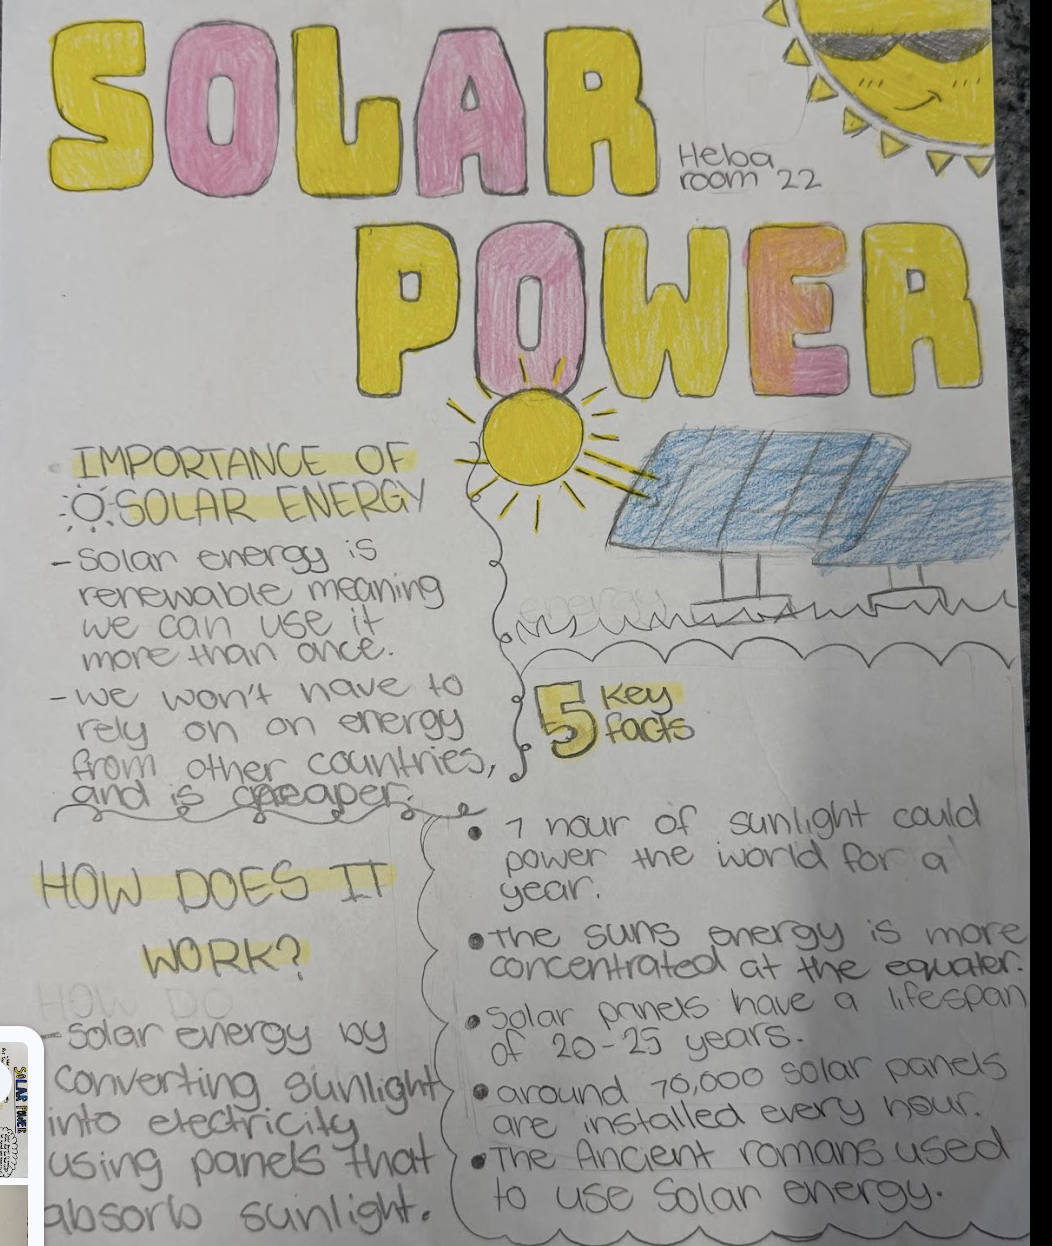 SOLAR
Heba
room 22
POWER
IMPORTANCE OF
SOLAR ENERGY
- Solar energy is
renewable meaning
we can use it
more than once.
- we won't have to
rely on on energy
from other countries,
and is cheaper.
HOW DOES IT
WORK?
HOW DO
- solar energy by
converting sunlight
into electricity
using panels that
absorb sunlight.
energy
5 key
facts
• 1 hour of sunlight could
power the world for a
year.
• The suns energy is more
concentrated at the equater.
• Solar panels have a lifespan
of 20-25 years.
• around 70,000 solar panels
are installed every hour.
• The Ancient romans used
to use Solar energy.
SOLAR POWER